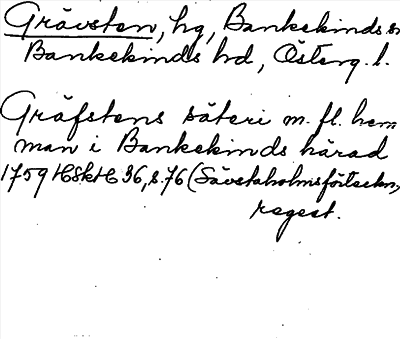 Grävsten, hg, Bankekinds sn
Bankekinds hd, Österg. l.
Gräfstens säteri m. fl. hem
man i Bankekinds härad
1759 HSkH 36, s. 76 (Sävstaholmsförteckn,
regest.